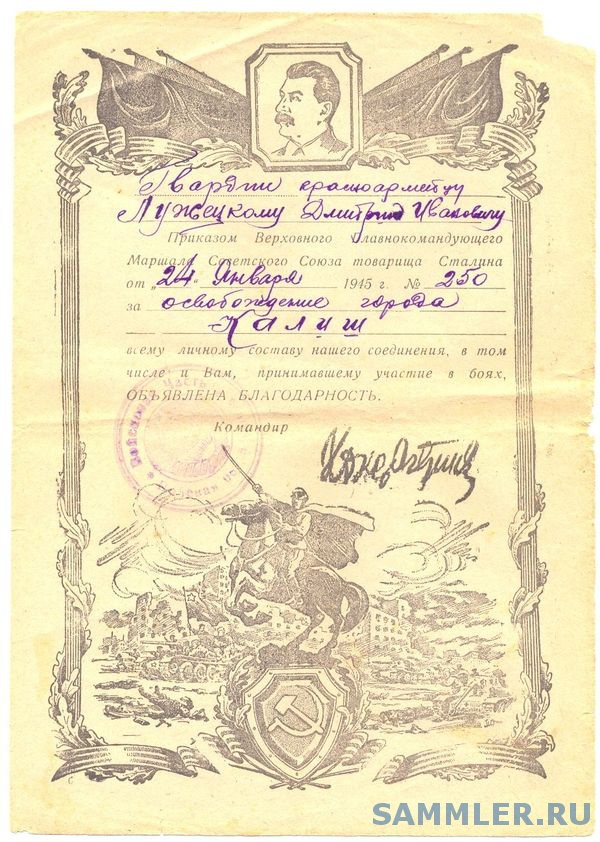 Гвардии красноармейцу
Лужецкому Дмитрию Ивановичу
Приказом Верховного Главнокомандующего
Маршала Советского Союза товарища Сталина
от „24“ Января 1945 г. № 250
за освобождение города
Калиш
всему личному составу нашего соединения, в том
числе и Вам, принимавшему участие в боях,
ОБЪЯВЛЕНА БЛАГОДАРНОСТЬ.
Командир
часть
SAMMLER.RU